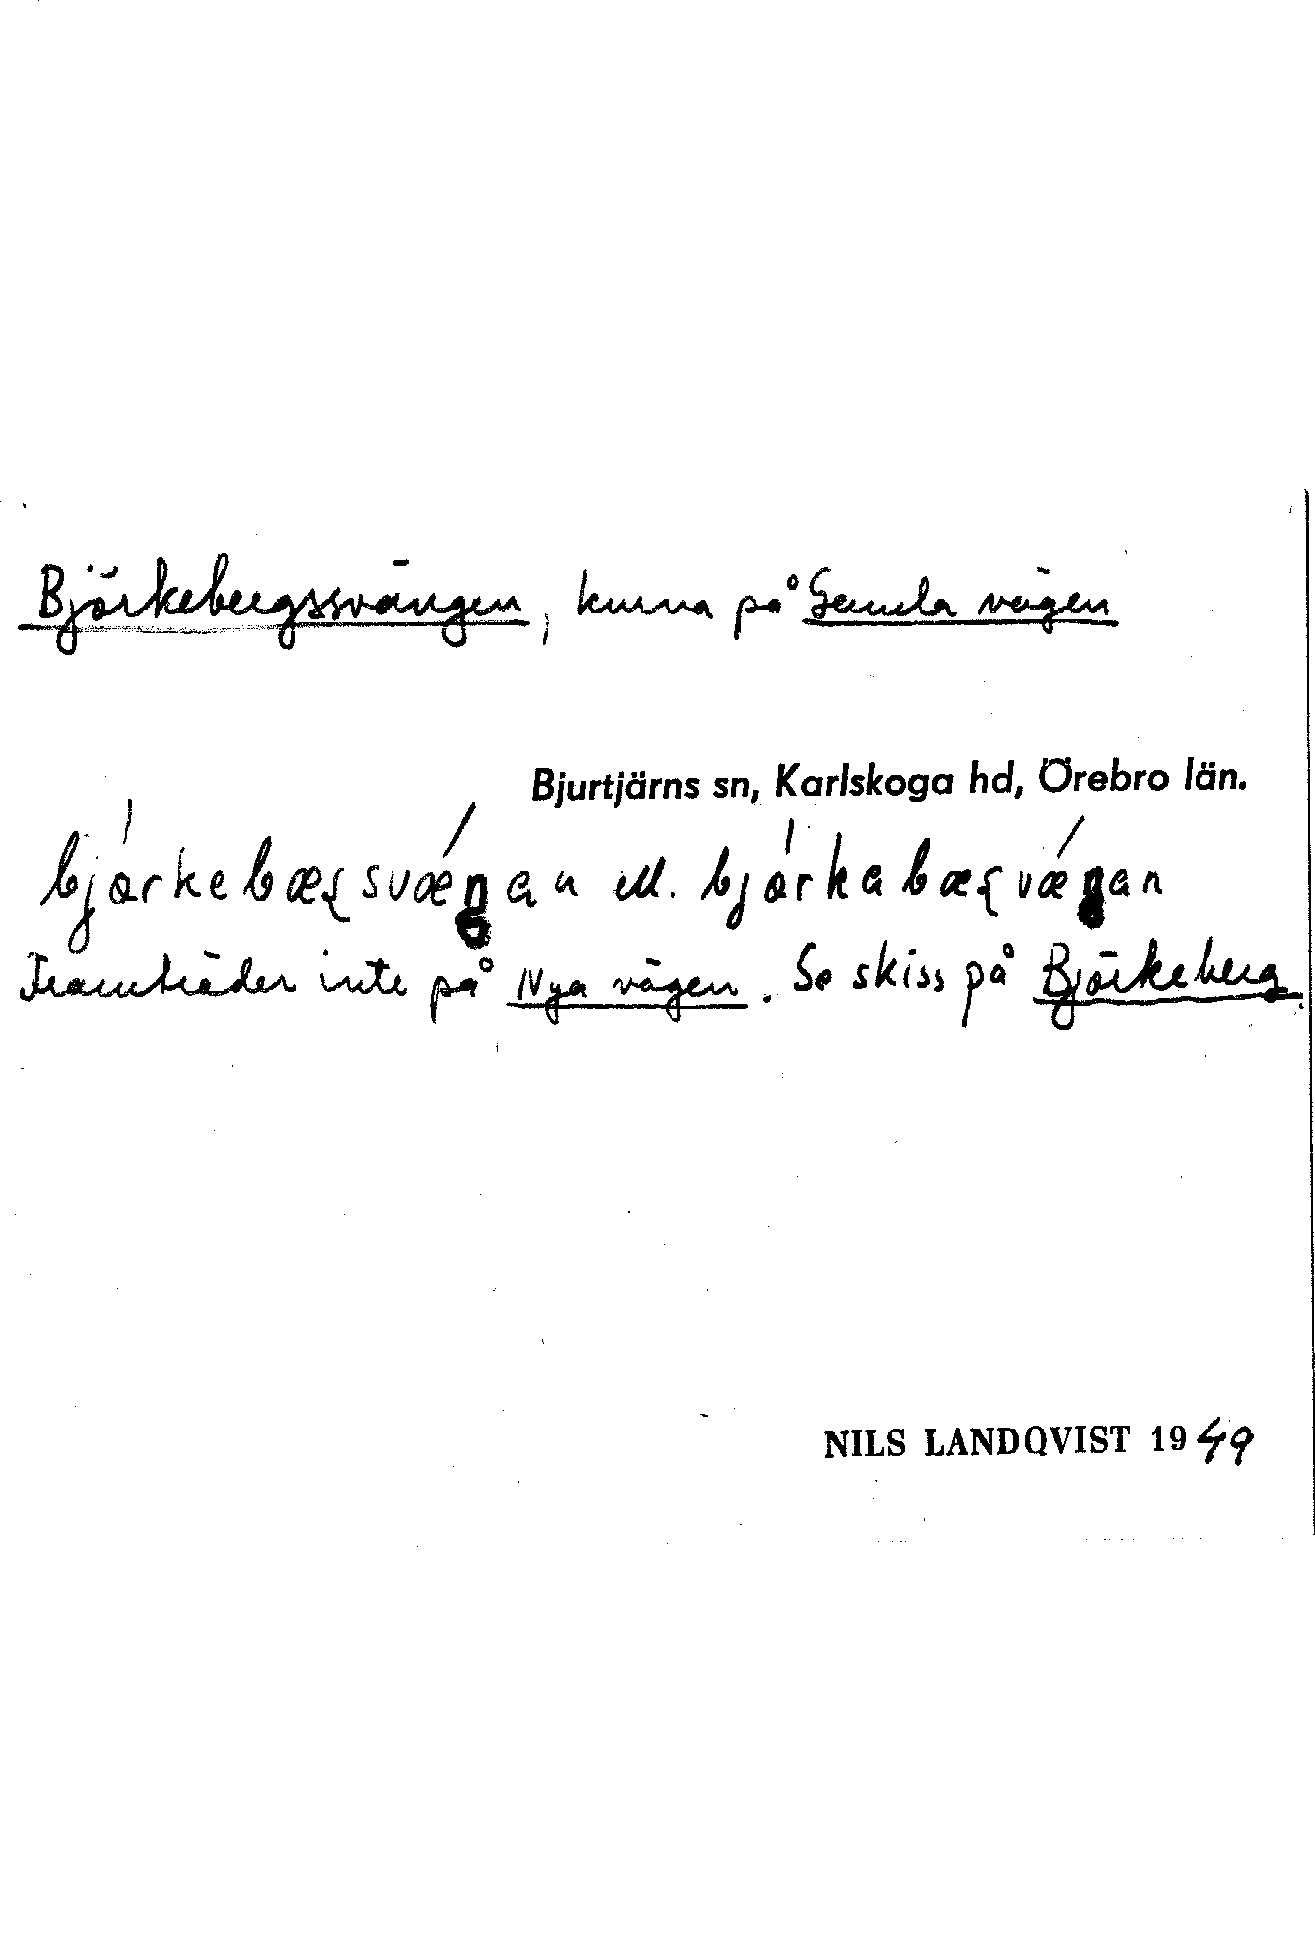 Björkebergssvängen, kurva på Gamla vägen
Bjurtjärns sn, Karlskoga hd, Örebro län.
bjǻrkebæꭍsvǽŋan ell. bjǻrkabæꭍvǽŋan
Framträder inte på Nya vägen. Se skiss på Björkeberg.
NILS LANDQVIST 1949